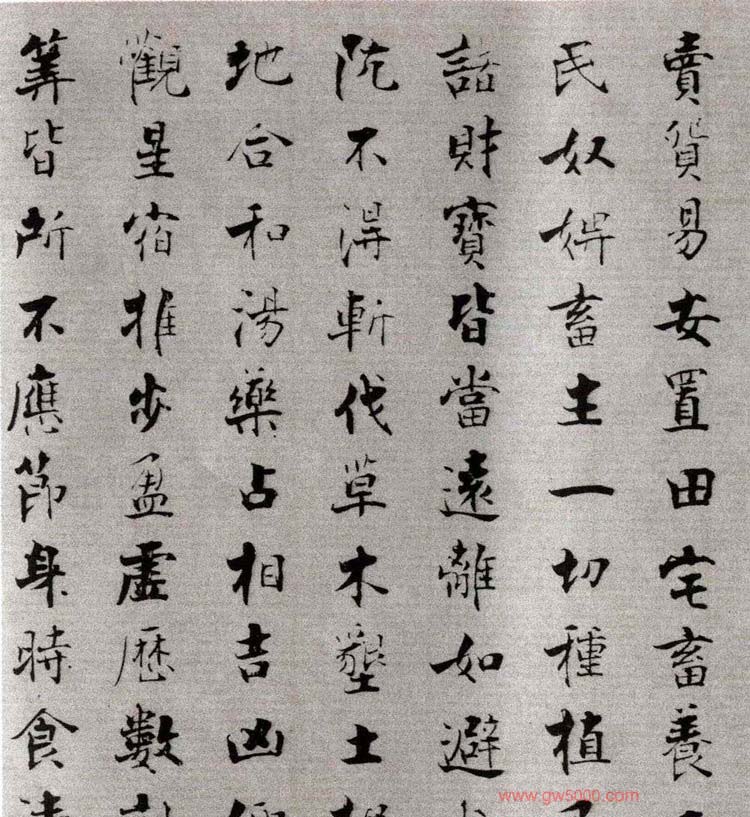 賣貿易安置田宅畜養
民奴婢畜生一切種植
諸財寶皆當遠離如避
阬不得斬伐草木墾土
地合和湯藥占相吉凶
觀星宿推步盈虛曆數
筭皆所不應節身時食
www.gw5000.com